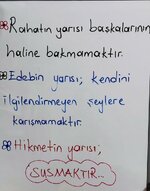 Rahatın yarısı başkalarının
haline bakmamaktır.
Edebin yarısı; kendini
ilgilendirmeyen şeylere
karışmamaktır.
Hikmetin yarısı;
SUSMAKTIR...